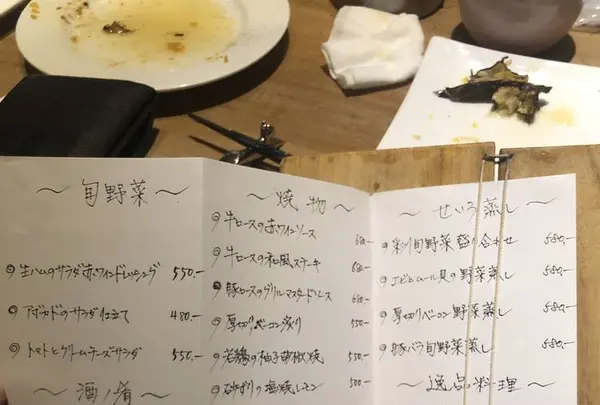 〜 旬野菜 〜
◎ 生ハムのサラダ赤ワインドレッシング 550.-
◎ アボカドのサラダ仕立て 480.-
◎ トマトとクリームチーズサラダ 550.-
〜 酒ノ肴 〜
〜 焼物 〜
◎ 牛ロースの赤ワインソース
◎ 牛ロースの和風ステーキ
◎ 豚ロースのグリルマスタードソース
◎ 厚切りベーコン炙り 550.-
◎ 若鶏の柚子胡椒焼 550.-
◎ 砂ずりの塩焼レモン 500.-
〜 せいろ蒸し 〜
◎ 彩り旬野菜盛り合わせ 580.-
◎ エビとムール貝の野菜蒸し 580.-
◎ 厚切りベーコン野菜蒸し 580.-
◎ 豚バラ旬野菜蒸し 580.-
〜 逸品料理 〜